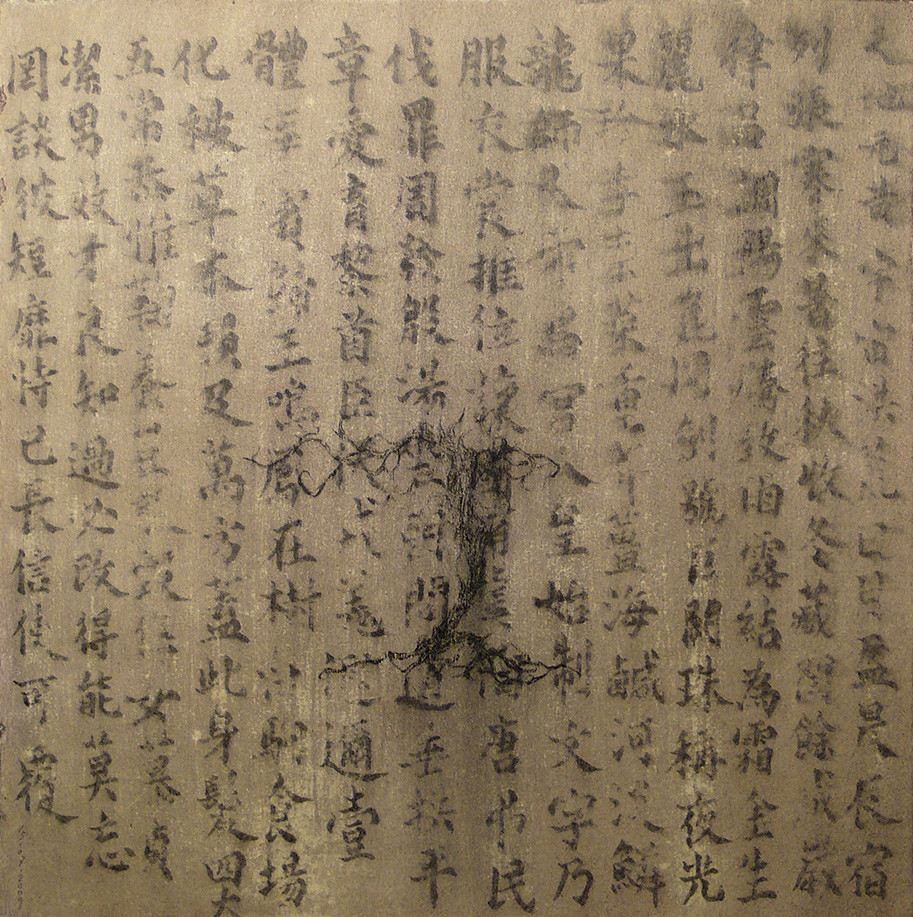 天地元黃宇宙洪荒日月盈昃辰宿
列張寒來暑往秋收冬藏閏餘成歲
律呂調陽雲騰致雨露結為霜金生
麗水玉出崑岡劍號巨闕珠稱夜光
果珍李柰菜重芥薑海鹹河淡鱗
龍師火帝鳥官人皇始制文字乃
服衣裳推位讓國有虞陶唐弔民
伐罪周發殷湯坐朝問道垂拱平
章愛育黎首臣伏戎羌遐邇壹
體率賓歸王鳴鳳在樹白駒食場
化被草木賴及萬方蓋此身髮四大
五常恭惟鞠養豈敢毀傷女慕貞
潔男效才良知過必改得能莫忘
罔談彼短靡恃己長信使可覆